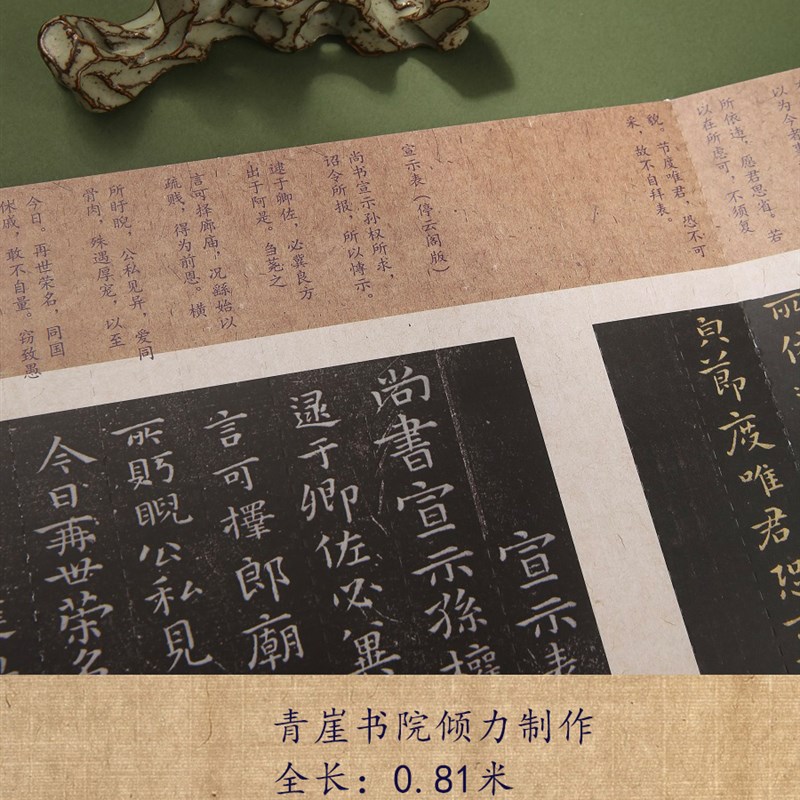 以为今者
所依违，愿君思省。若
以在所虑可，不须复
貌。节度唯君，恐不可
采，故不自拜表。
宣示表（停云阁版）
尚书宣示孙权所求，
诏令所报，所以博示。
逮于卿佐，必冀良方
出于阿是。刍荛之
言可择廊庙，况繇始以
疏贱，得为前恩。横
所盱睨，公私见异，爱同
骨肉，殊遇厚宠，以至
今日。再世荣名，同国
休戚，敢不自量。窃致愚
所依
貌節度唯君恐
宣示表
尚書宣示孫權
逮于卿佐必冀
言可擇郎廟
所眄睨公私見
今日再世荣名
青崖书院倾力制作
全长：0.81米